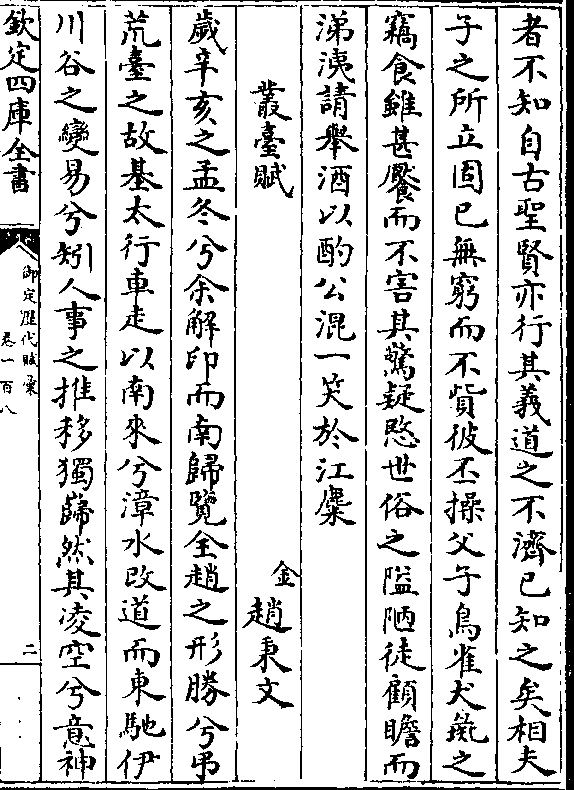 者不知自古聖賢亦行其義道之不濟已知之矣相夫
子之所立固已無窮而不貲彼丕操父子鳥雀犬彘之
竊食雖甚饜而不害其驚疑愍世俗之隘陋徒顧瞻而
涕洟請舉酒以酌公混一笑於江麋
叢臺賦
金 趙秉文
歲辛亥之孟冬兮余解印而南歸覽全趙之形勝兮弔
荒臺之故基太行車走以南來兮漳水改道而東馳伊
川谷之變易兮矧人事之推移獨巋然其凌空兮意神
欽定四庫全書
御定歷代賦彙
卷一百八
二